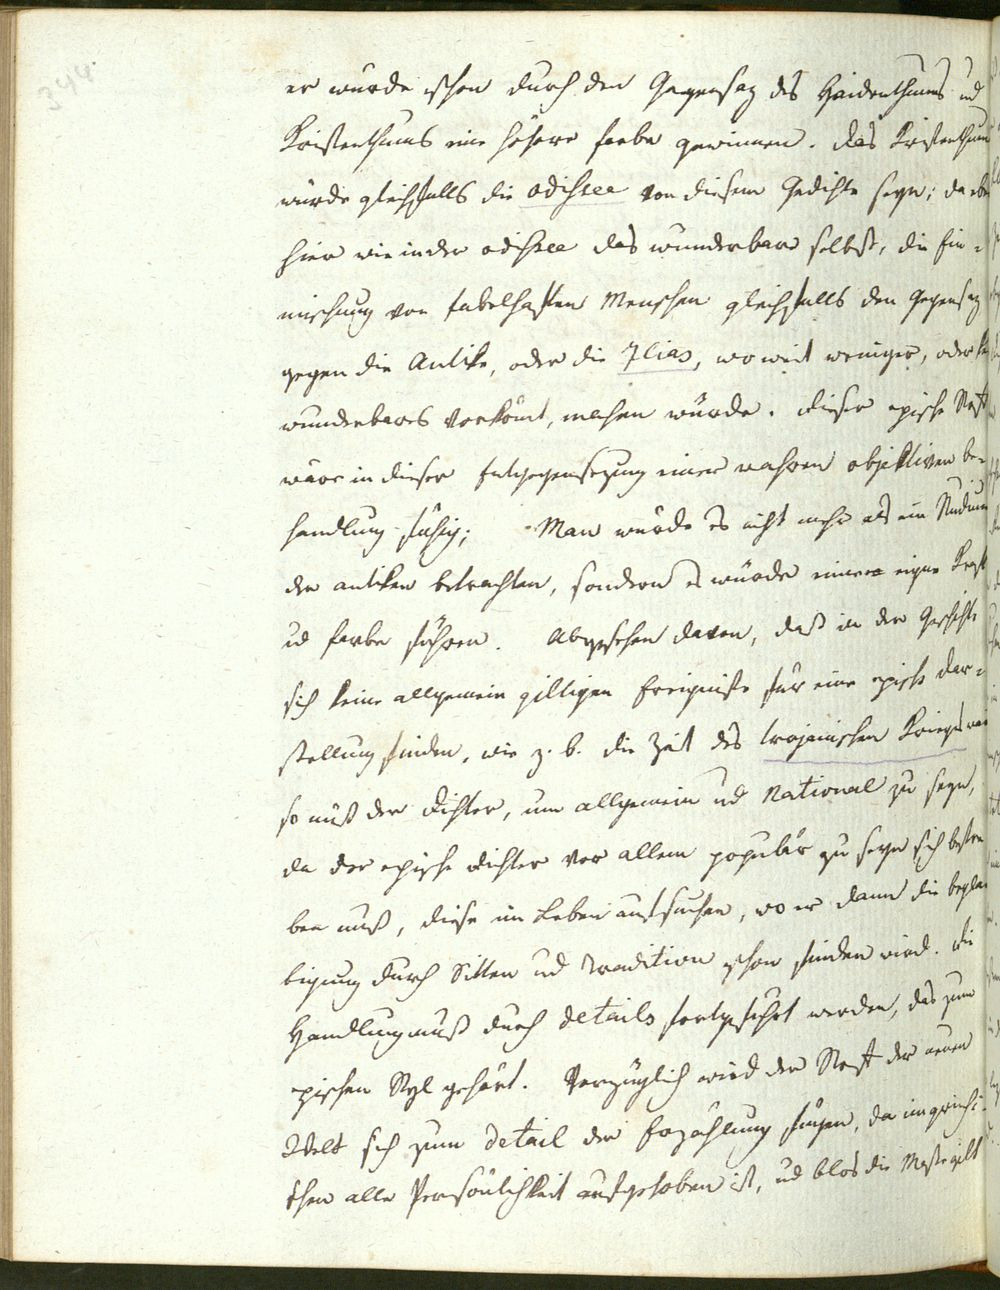 344.
er wurde schon durch den Gegensaz des Heidenthums ud
Kristenthums eine höhere farbe gewinnen. das Kristenthum
würde gleichfalls die odissee von diesem Gedichte seyn; da eben
hier wie in der odissee das wunderbare selbst, die Ein=
mischung von fabelhaften Menschen gleichfalls den Gegensaz
gegen die Antike, oder die Ilias, wo weit weniger, oder kein
wunderbares vorkömt, machen würde. dieser epische Stoff
wäre in dieser Entgegensezung einer wahren objektiven be=
handlung fähig; Man würde es nicht mehr als ein Studium
der antiken betrachten, sondern es würde eigne Kraft
ud farbe führen. Abgesehen davon, daß in der Geschichte
sich keine allgemein giltigen Ereignisse für eine epische dar=
stellung finden, wie z. b. die Zeit des trojanischen Krieges war
so muß der dichter, um allgemein ud national zu seyn,
da der epische dichter vor allem populär zu seyn sich bestre
ben muß, diese im Leben aufsuchen, wo er dann die beglau
bigung durch Sitten ud Tradition schon finden wird. die
Handlung muß durch details fortgeführt werden, das zum
epischen Styl gehört. Vorzüglich wird der Stoff der neuen
Welt sich zum detail der Erzählung fügen, da im griechi=
schen alle Persönlichkeit aufgehoben ist, ud blos die Masse gilt